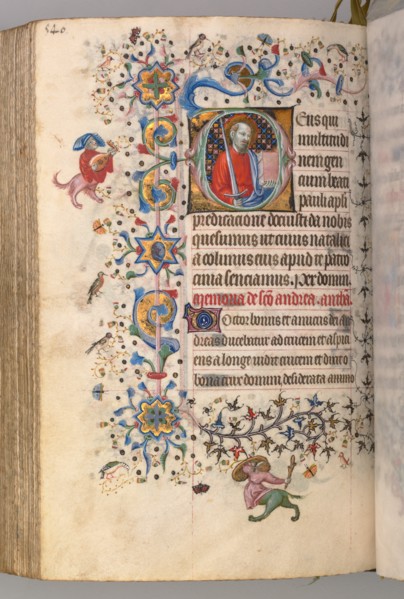 Deus qui
multitudi
nem gen
cium beati
pauli apli
predicacione docuisti da nobis
quesumus ut cuius natalici
a colimus eius apud te patro
cinia senciamus. Per domin.
memoria de sco andrea. antha.
Doctor bonus et amicus dei an
dreas ducebatur ad crucem et aspici
ens a longe vidit crucem et dixit o
bona crux domum desiderata animo